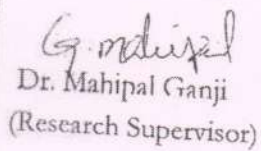 G. Mahipal
Dr. Mahipal Ganji
(Research Supervisor)